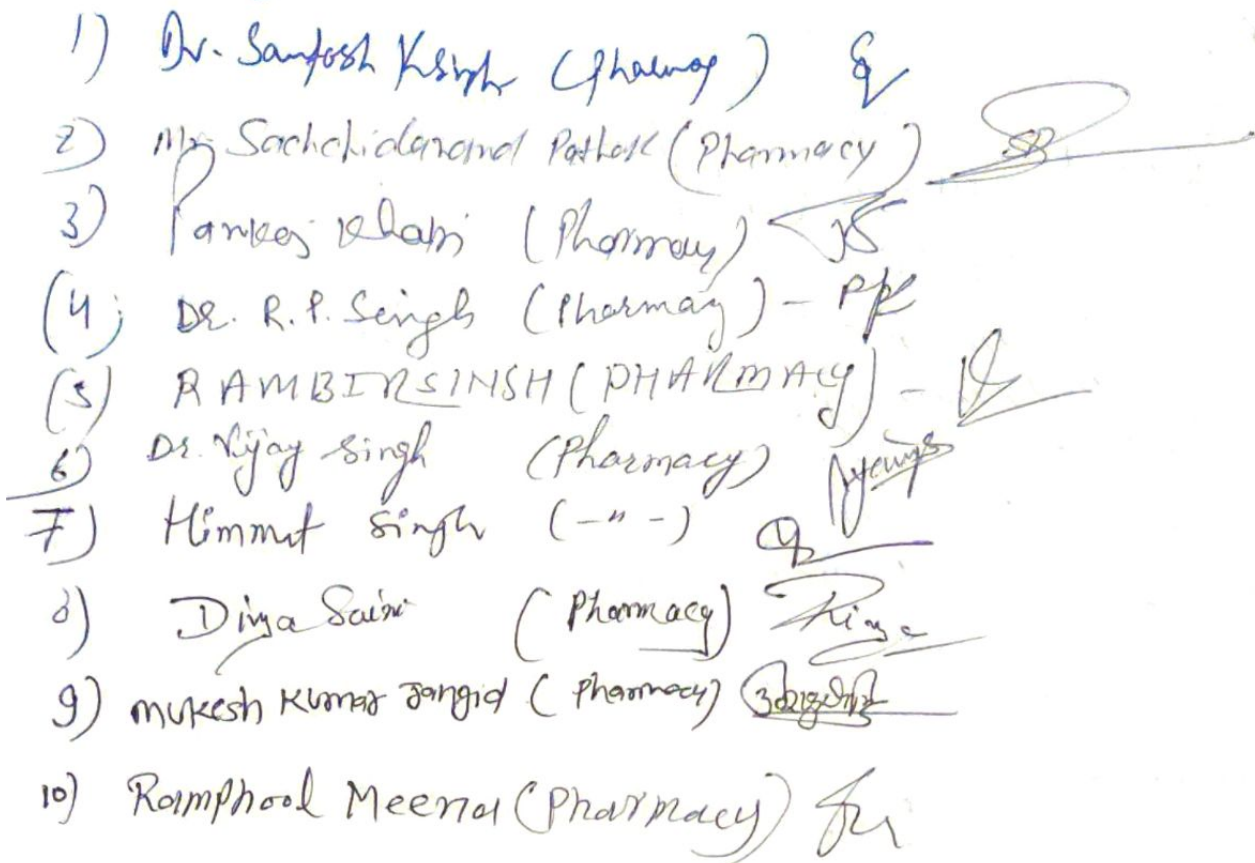 1) Dr. Santosh K Singh (Pharmacy)
2) Mr Sachchidanand Pathak (Pharmacy)
3) Pankaj Khatri (Pharmacy)
(4) DR. R. P. Singh (Pharmacy) -
(5) RAMBIR SINGH (PHARMACY) -
6) Dr. Vijay Singh (Pharmacy)
7) Himmat Singh (-"-)
8) Divya Saini (Pharmacy) Divya
9) Mukesh Kumar Jangid (Pharmacy)
10) Ramphool Meena (Pharmacy)